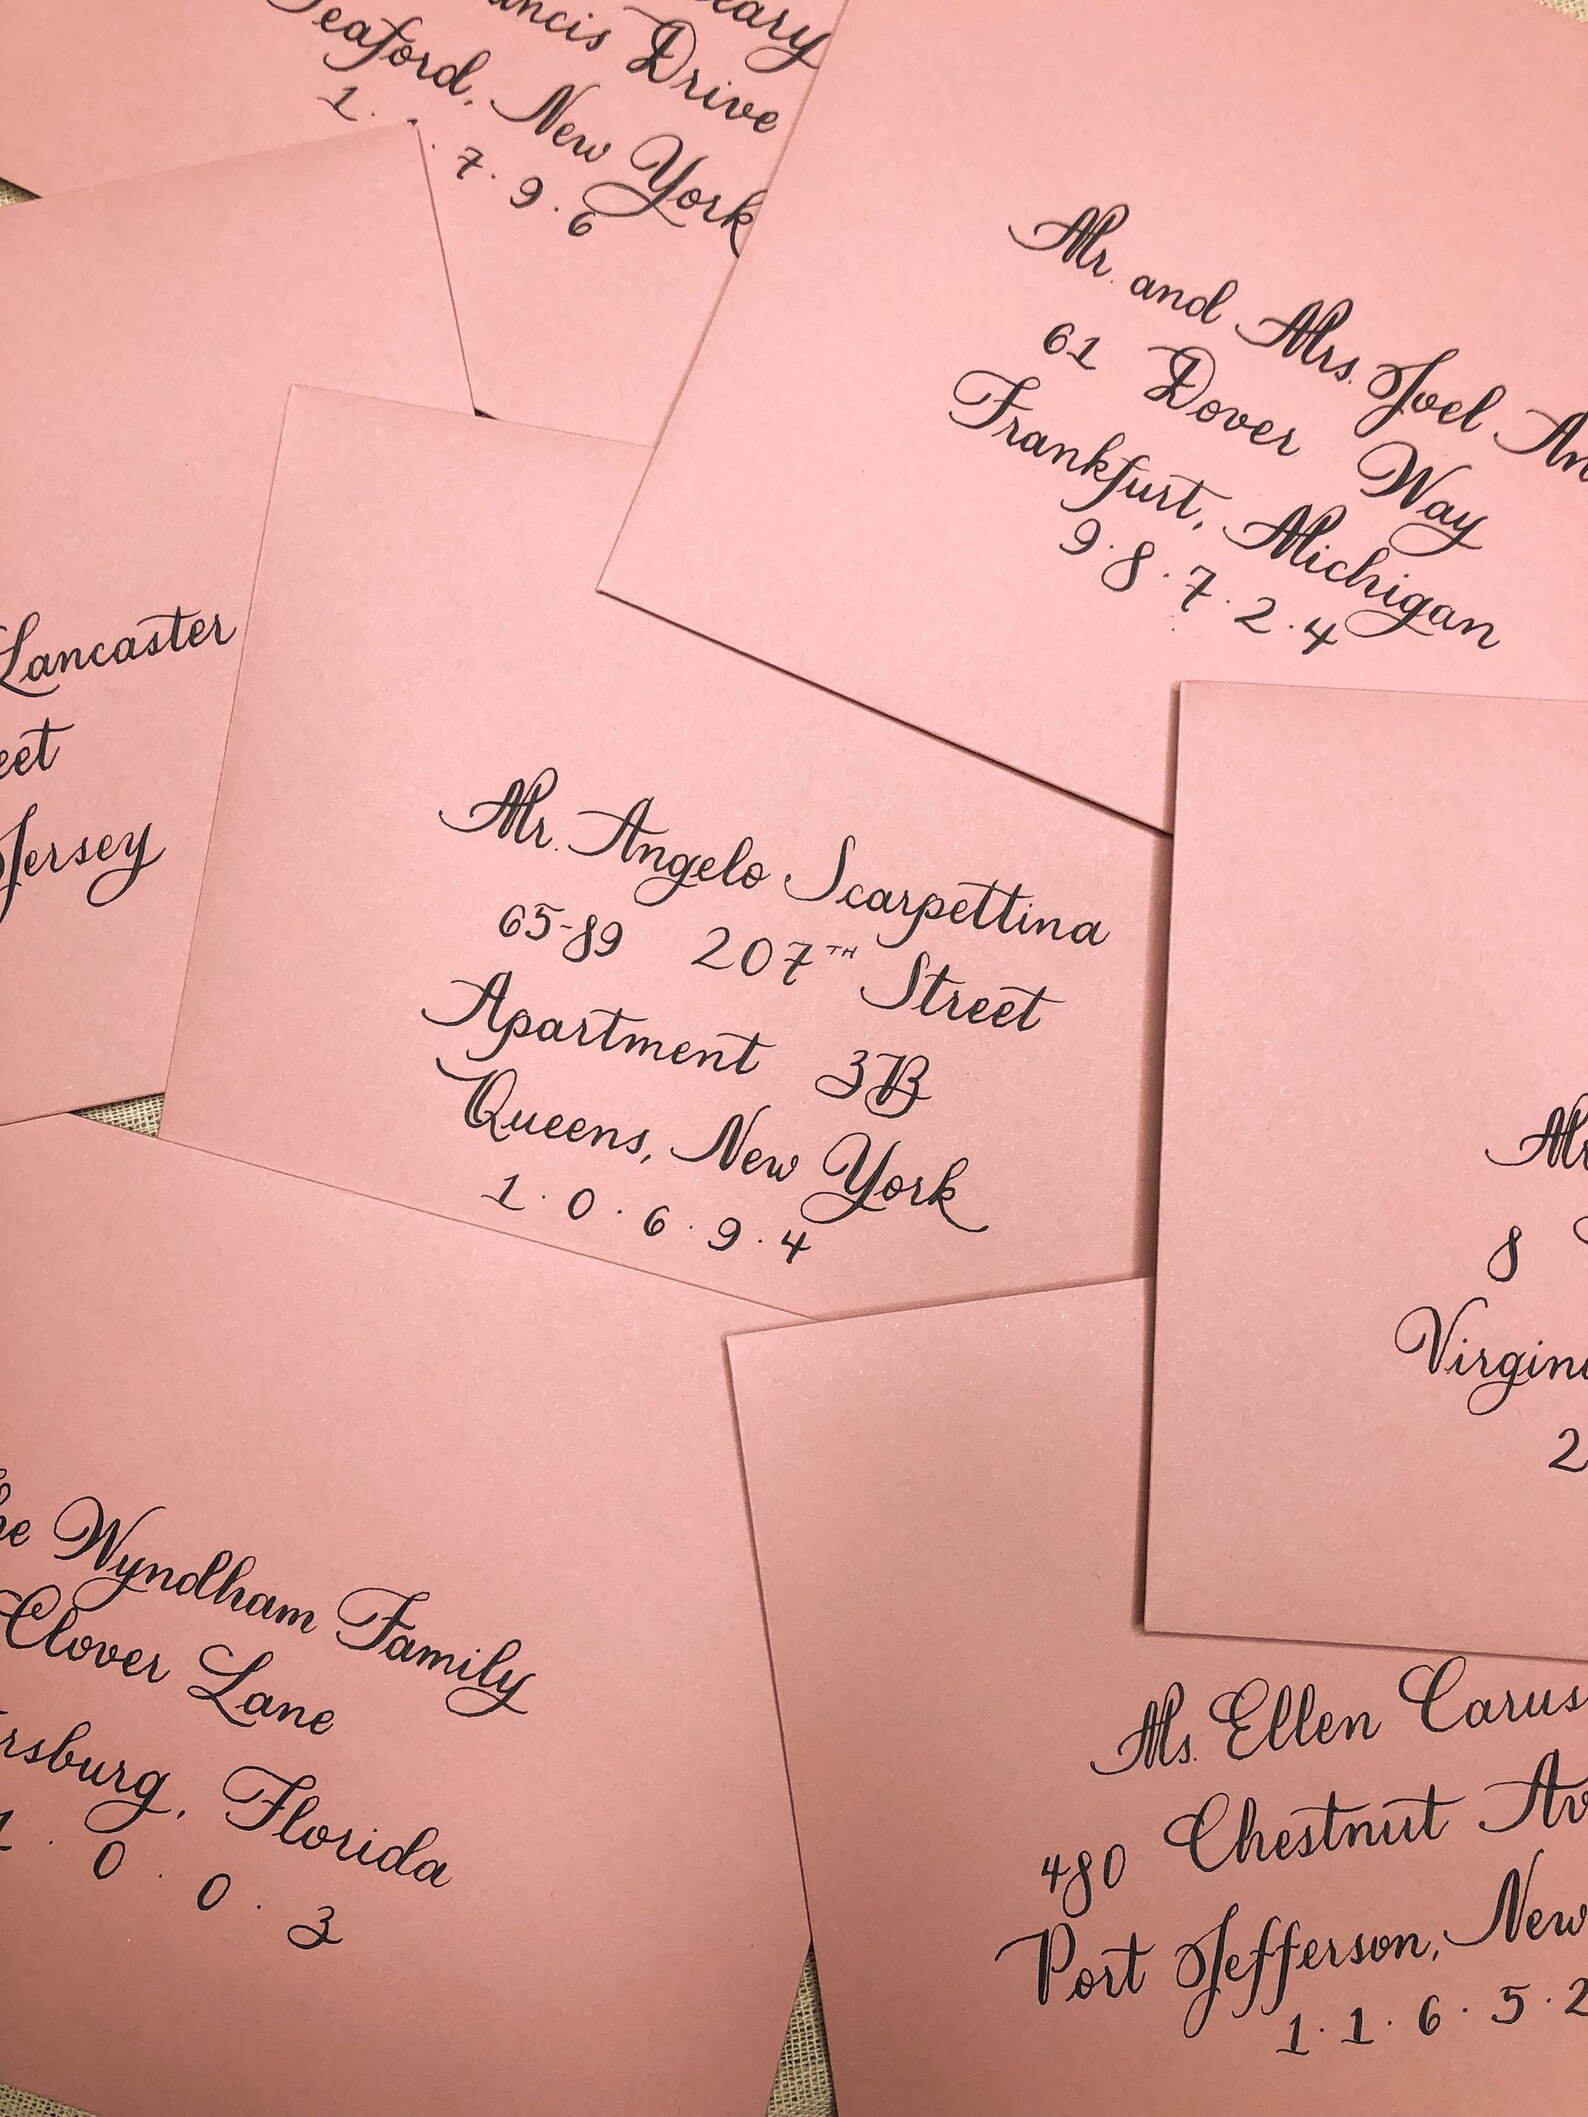 Francis Drive
Seaford, New York
7 . 9 . 6
Mr. and Mrs. Joel
61 Dover Way
Frankfurt, Michigan
9 . 8 . 7 . 2 . 4
Lancaster
Jersey
Mr. Angelo Scarpettina
65-89 207TH Street
Apartment 3B
Queens, New York
1 . 0 . 6 . 9 . 4
8
2
The Wyndham Family
Clover Lane
Florida
1 . 0 . 0 . 3
Ms. Ellen
480 Chestnut
Port Jefferson, New
1 . 1 . 6 . 5 . 2